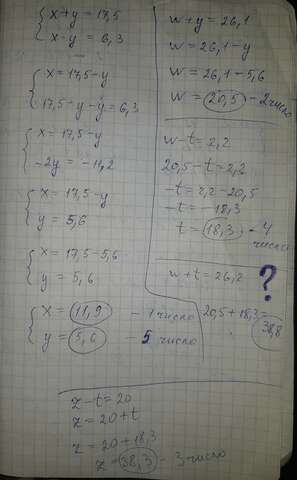 x+y = 17,5
x-y = 6,3
x = 17,5-y
17,5-y-y = 6,3
x = 17,5-y
-2y = -11,2
x = 17,5-y
y = 5,6
x = 17,5-5,6
y = 5,6
x = 11,9 - 1 число
y = 5,6 - 5 число
w+y = 26,1
w = 26,1-y
w = 26,1-5,6
w = 20,5 - 2 число
w-t = 2,2
20,5-t = 2,2
-t = 2,2-20,5
-t = -18,3
t = 18,3 - 4 число
w+t = 26,2 ?
20,5+18,3 = 38,8
z-t = 20
z = 20+t
z = 20+18,3
z = 38,3 - 3 число